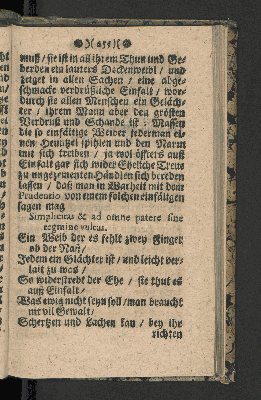 muß / sie ist in all ihrem Thun und Ge-
berden ein lauters Dockenwerck / und
zeiget in allen Sachen / eine abge-
schmackte verdrüßliche Einfalt / wor-
durch sie allen Menschen ein Geläch-
ter / ihrem Mann aber den grösten
Verdruß und Schande ist : Massen
die so einfältige Weiber jederman ei-
nen spihlen und den Narrn
mit sich treiben / ja wol öffters auß
Einfalt gar sich wider Eheliche Treu
zu ungezimenten Händlen sich bereden
lassen / daß man in Warheit mit dem
Prudentio von einem solchen einfältigen
sagen mag
Simplicitas & ad omne patere sine
regmine vultus.
Ein Weib der es fehlt zwey Finger
ob der Naß /
Jedem ein Glächter ist / und leicht ver-
lait zu was /
So widerstrebt der Ehe / sie thut es
auß Einfalt /
Was ewig nicht seyn soll / man braucht
mit vil Gewalt /
Schertzen und Lachen kan / bey ihr
richten